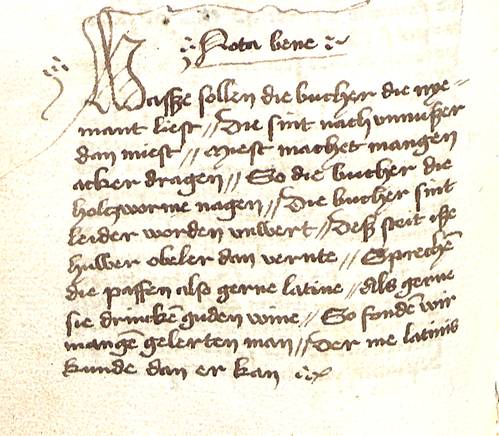 Nota bene
Wasße sollen die bucher die nye=
mant liest // Die sint nach vnnußer
dan miest // Miest machet mangen
acker dragen // So die bucher die
holczworme nagen // Die bucher sint
leider worden vnwert // Deß steit iße
huwer obeler dan vernte // Sprechē
die paffen also gerne latine // Als gerne
sie drinckē guden wine // So fondē wir
mangē gelerten man // Der me latinis
kunde dan er kan